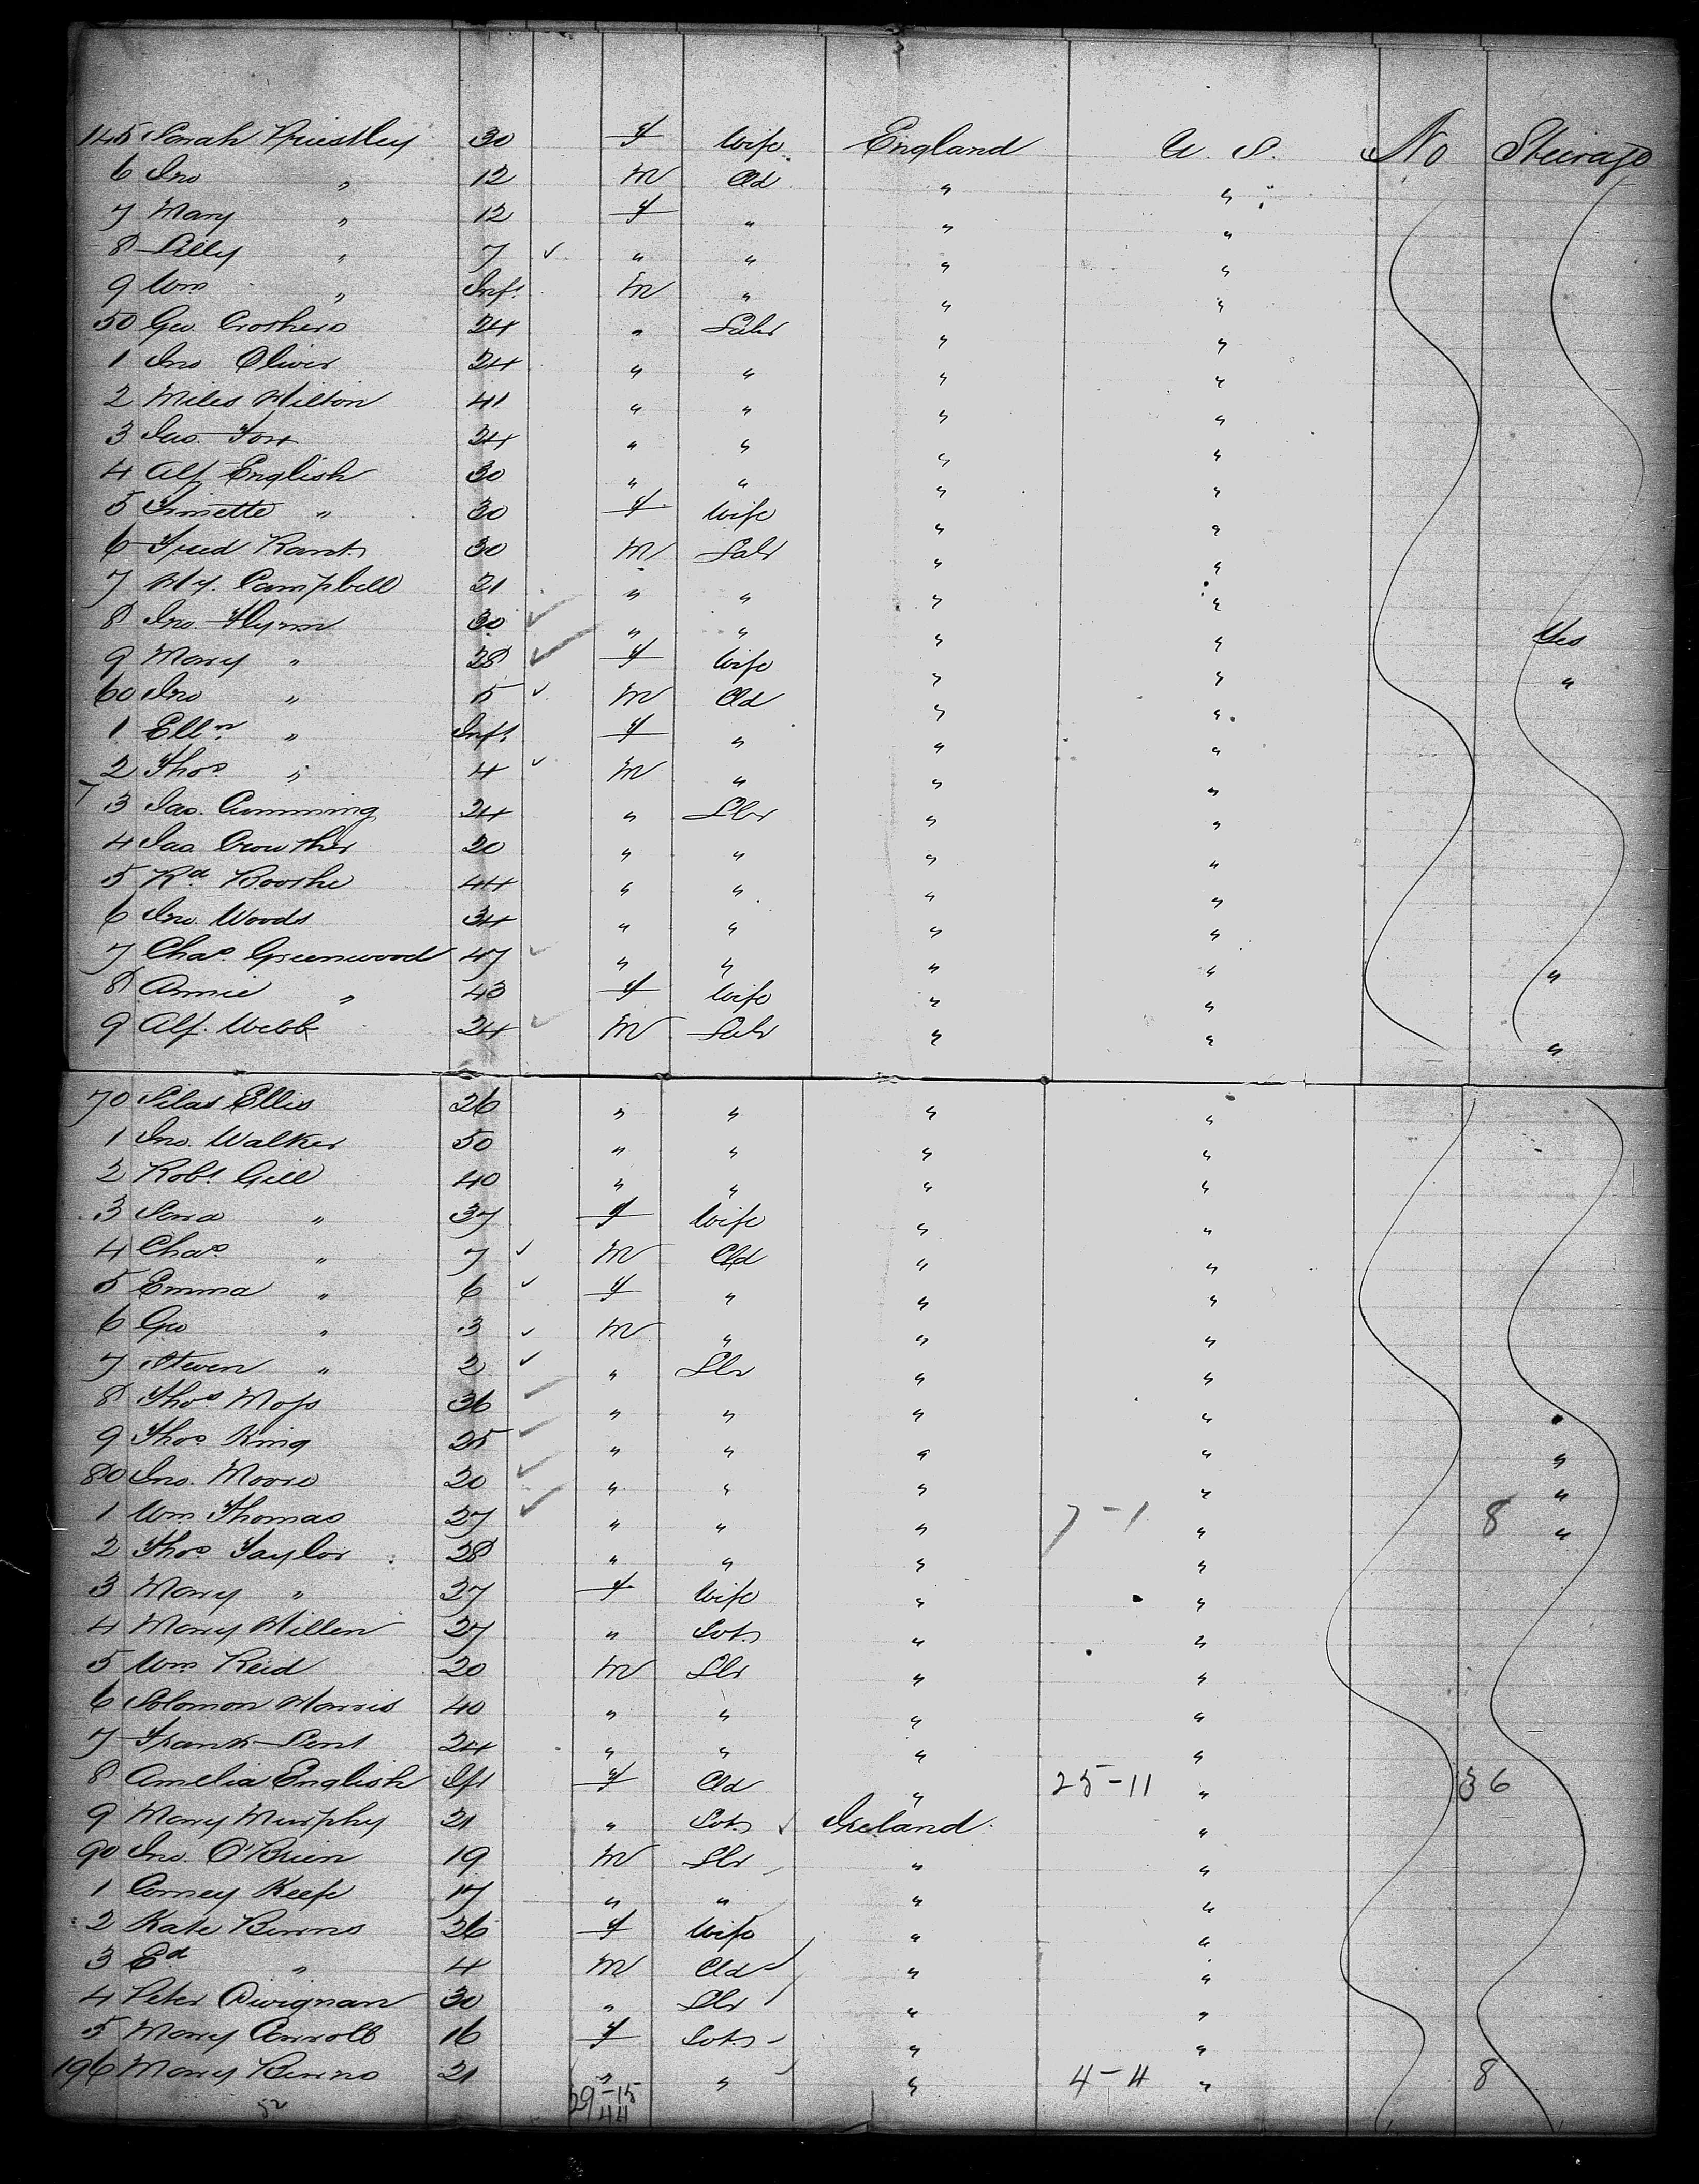 145 Sarah Priestley 30 f Wife England U. S. No Steerage
6 Jno " 12 M Cld " "
7 Mary " 12 f " " "
8 Lilly " 7 ✓ " " " "
9 Wm " Inft M " " "
50 Geo. 24 " Labr " "
1 Jno Oliver 24 " " " "
2 Miles Hilton 41 " " " "
3 Jas. Fox 24 " " " "
4 Alf English 30 " " " "
5 " 30 f Wife " "
6 Fred 30 M Labr " "
7 Hy. Campbell 21 " " " "
8 Jno. Flynn 30 ✓ " " " " Yes
9 Mary " 28 ✓ f Wife " " "
60 Jno " 5 ✓ M Cld " "
1 Elln " Inft f " " "
2 Thos " 4 ✓ M " " "
3 Jas. Cumming 24 " Lbr " "
4 Jas Crowther 20 " " " "
5 Rd 44 " " " "
6 Jno. Woods 34 " " " "
7 Chas. Greenwood 47 ✓ " " " " "
8 Annie " 43 f Wife " "
9 Alf. Webb 24 ✓ M Labr " " "
70 Silas Ellis 26 " " " "
1 Jno. Walker 50 " " " "
2 Robt Gill 40 " " " "
3 Sara " 37 f Wife " "
4 Chas " 7 ✓ M Cld " "
5 Emma " 6 ✓ f " " "
6 Geo " 3 ✓ M " " "
7 Steven " 2 ✓ " Lbr " "
8 Thos Moss 36 ✓ " " " " "
9 Thos. King 25 ✓ " " " " "
80 Jno. Moore 20 ✓ " " " " "
1 Wm Thomas 27 ✓ " " " 7-1 " 8 "
2 Thos. Taylor 28 " " " "
3 Mary " 27 f Wife " "
4 Mary Hillen 27 " " "
5 Wm Reid 20 M Lbr " "
6 Solomon Harris 40 " " " "
7 Frank 24 " " " "
8 Amelia English Ift f Cld " 25-11 " 36
9 Mary Murphy 21 " Ireland "
90 Jno. O'Brien 19 M Lbr " "
1 Corney Keefe 17 " " " "
2 Kate 26 f Wife " "
3 Ed " 4 M Cld " "
4 Peter 30 " Lbr " "
5 Mary Carroll 16 f " "
196 Mary 21 " " " 4-4 " 8
52 29-15
44